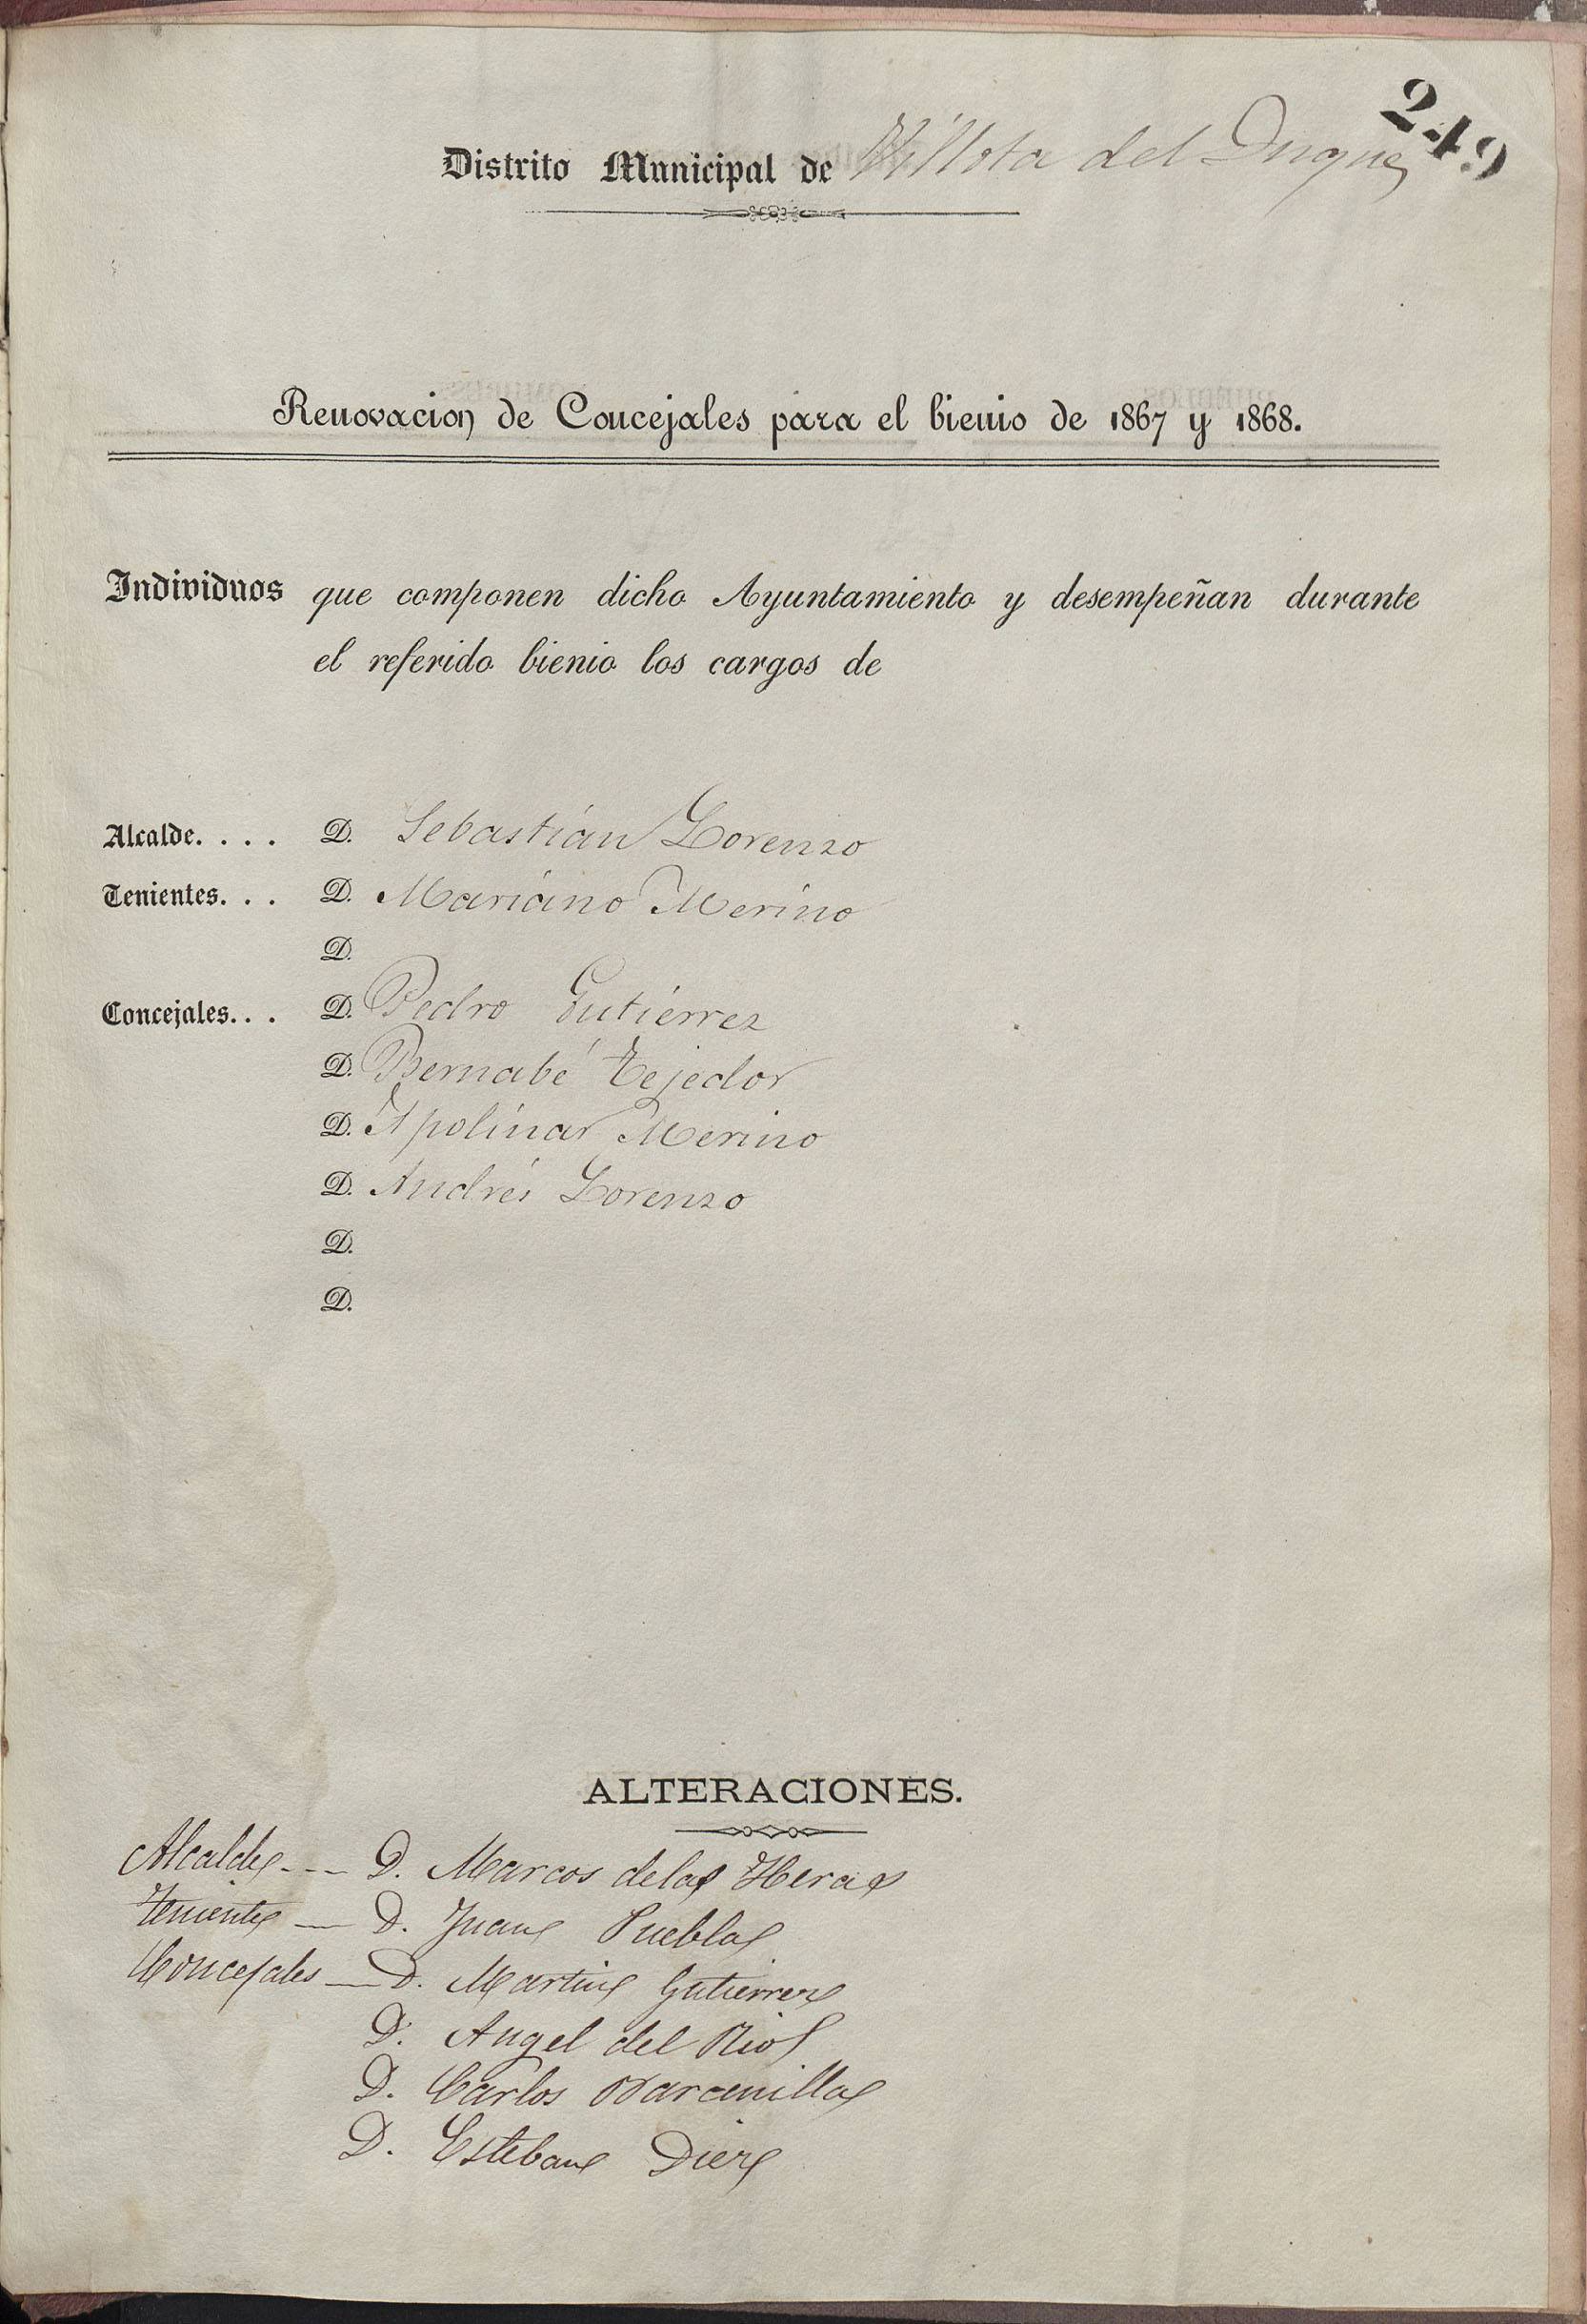 249
Distrito Municipal de Villota del Duque
Renovacion de Concejales para el bienio de 1867 y 1868.
Individuos que componen dicho Ayuntamiento y desempeñan durante
el referido bienio los cargos de
Alcalde. . . . D. Sebastián Lorenzo
Tenientes. . . D. Mariano Merino
D.
Concejales. . . D. Pedro Gutiérrez
D. Bernabé Tejedor
D. Apolinar Merino
D. Andrés Lorenzo
D.
D.
ALTERACIONES.
Alcalde --- D. Marcos de las Heras
Teniente — D. Juan Puebla
Concejales — D. Martin Gutierrez
D. Angel del Rio
D. Carlos Barcenilla
D. Esteban Diez